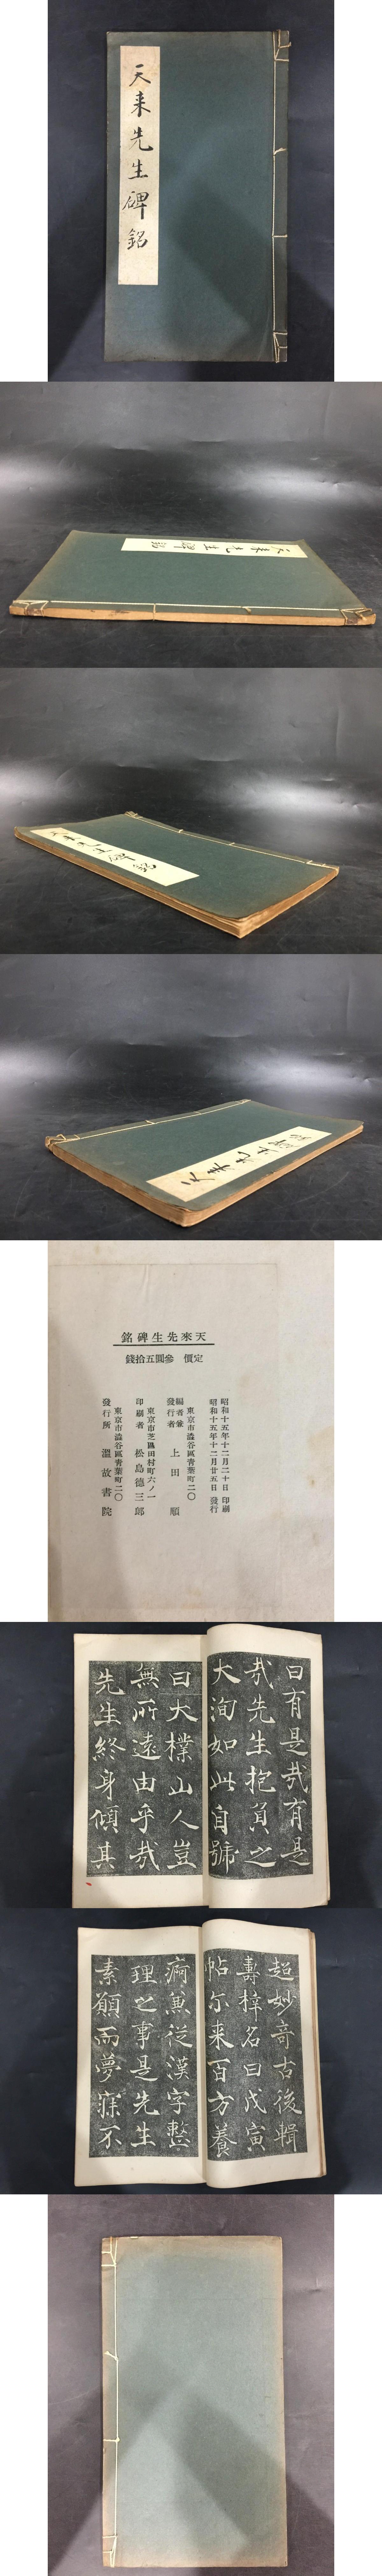 天来先生碑銘
天来先生碑銘
天来先生碑銘
天来先生碑銘
天來先生碑銘
定價 參圓五拾錢
昭和十五年十二月二十日 印刷
昭和十五年十二月廿五日 發行
東京市澁谷區青葉町二〇
編者兼發行者 上田順
東京市芝區田村町六ノ一
印刷者 松島德三郎
東京市澁谷區青葉町二〇
發行所 溫故書院
曰有是哉有是
哉先生抱負之
大洵如此自號
曰大樸山人豈
無所遠由乎哉
先生終身傾其
超妙奇古後輯
壽梓名曰戊寅
帖尓来百方養
痾兼從漢字整
理之事是先生
素願而夢寐不